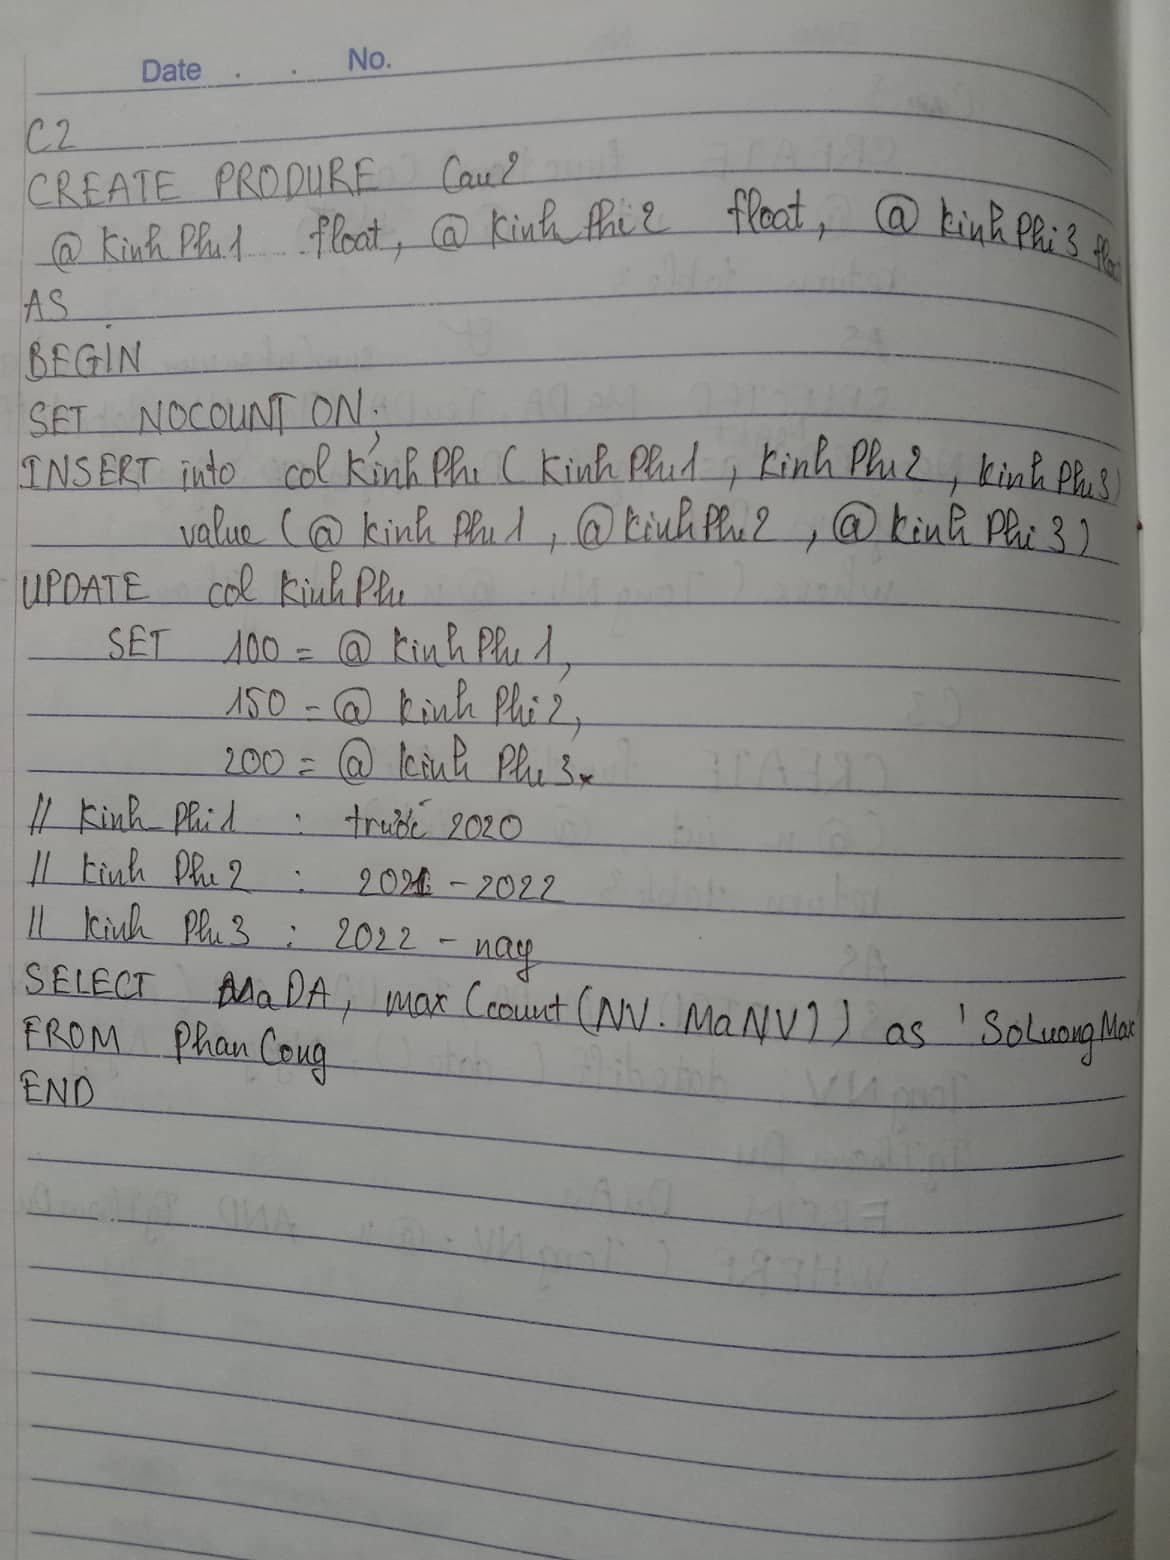 Date . . No.
C2
CREATE PRODURE Cau2
@ Kinh Phi1 float, @ Kinh Phi2 float, @ Kinh Phi3
AS
BEGIN
SET NOCOUNT ON;
INSERT into col Kinh Phi ( Kinh Phi1 , Kinh Phi2 , Kinh Phi3)
value ( @ Kinh Phi1 , @ Kinh Phi2 , @ Kinh Phi3 )
UPDATE col Kinh Phi
SET 100 = @ Kinh Phi1,
150 = @ Kinh Phi2,
200 = @ Kinh Phi3
// Kinh Phi1 : trước 2020
// Kinh Phi2 : 2021 - 2022
// Kinh Phi3 : 2022 - nay
SELECT MaDA, max (count (NV. MaNV)) as 'SoLuongMax
FROM Phan Cong
END